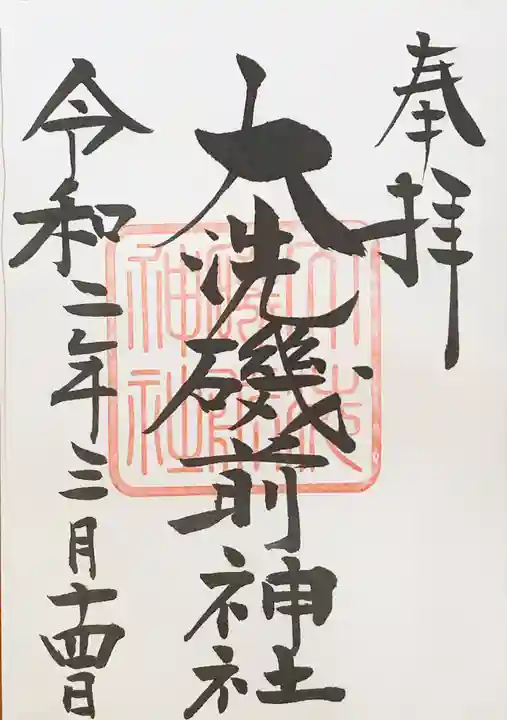 奉拝
大洗磯前神社
令和二年三月十四日
大洗磯前神社